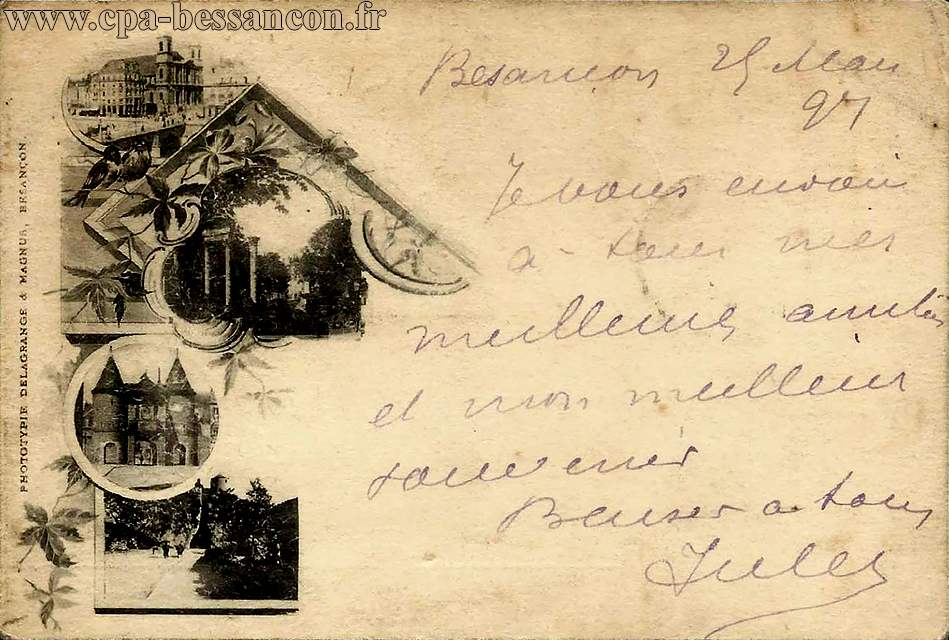 www.cpa-bessancon.fr
PHOTOTYPIE DELAGRANGE & MAGNUS, BESANÇON
Besançon 25 Mai
97
Je vous envoie
à tous mes
meilleures amitiés
et mon meilleur
souvenir
Baiser a tous
Jules